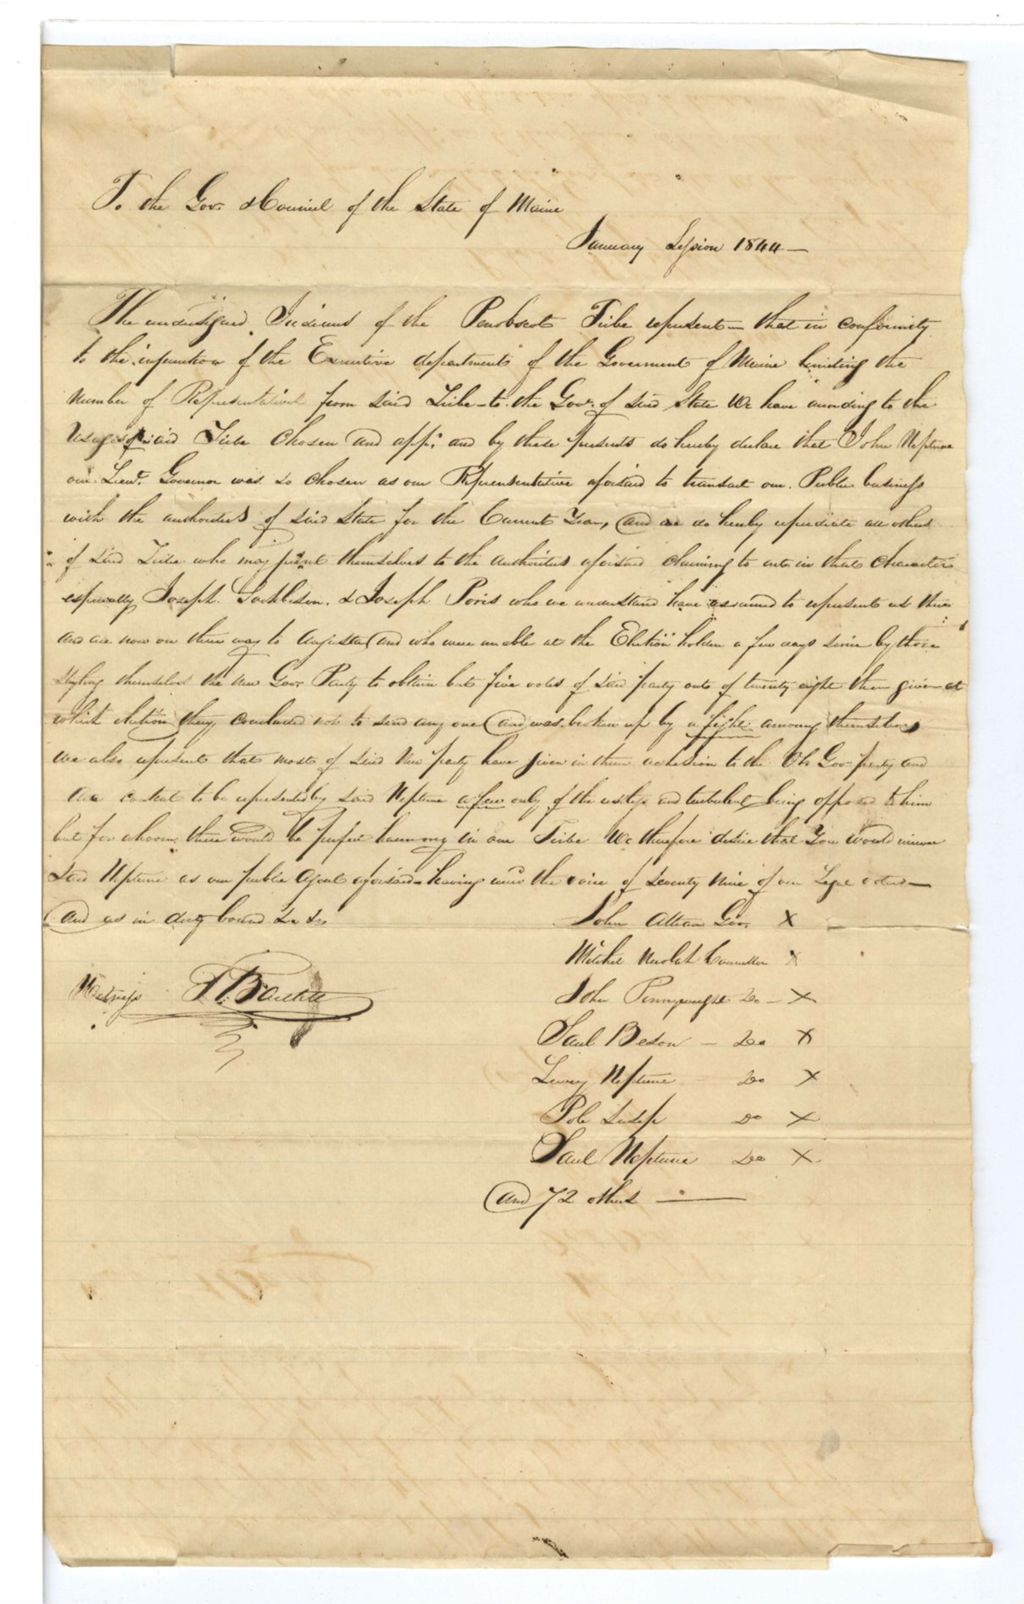 To the Gov. & Council of the State of Maine
January Session 1844 —
The undersigned Indians of the Penobscot Tribe represent — that in conformity
to the injunction of the Executive department of the Government of Maine limiting the
number of Representatives from said Tribe — to the Gov. of said State We have according to the
Usages of said Tribe Chosen and app: and by these presents do hereby declare that John Neptune
our Lieut. Governor was so chosen as our Representative aforsaid to transact our Public business
with the authorities of said State for the Current Year, and we do hereby repudiate all others
of said Tribe who may present themselves to the authorities aforsaid claiming to act in that character
especially Joseph Sockbeson & Joseph Poris who we understand have assumed to represent us there
and are now on there way to Augusta and who were unable at the Election holden a few days since by those
styling themselves the new Gov. Party to obtain but five votes of said party out of twenty eight then given at
which election they concluded not to send any one and was broken up by a fight among themselves
We also represent that most of said New party have given in there adhesion to the Old Gov party and
are content to be represented by said Neptune a few only of the and turbulent being opposed to him
but for whom there would be perfect harmony in our Tribe We therefore desire that You would receive
said Neptune as our public Agent aforsaid — having the voice of Seventy Nine of our Legal voters —
and as in duty bound &c &c
John Attean Gov. X
Mitchel Councillor X
John Pennywight Do — X
Saul Beson — Do X
Lewey Neptune Do X
Pole Susep Do X
Saul Neptune Do X
and 72 others —
Witness